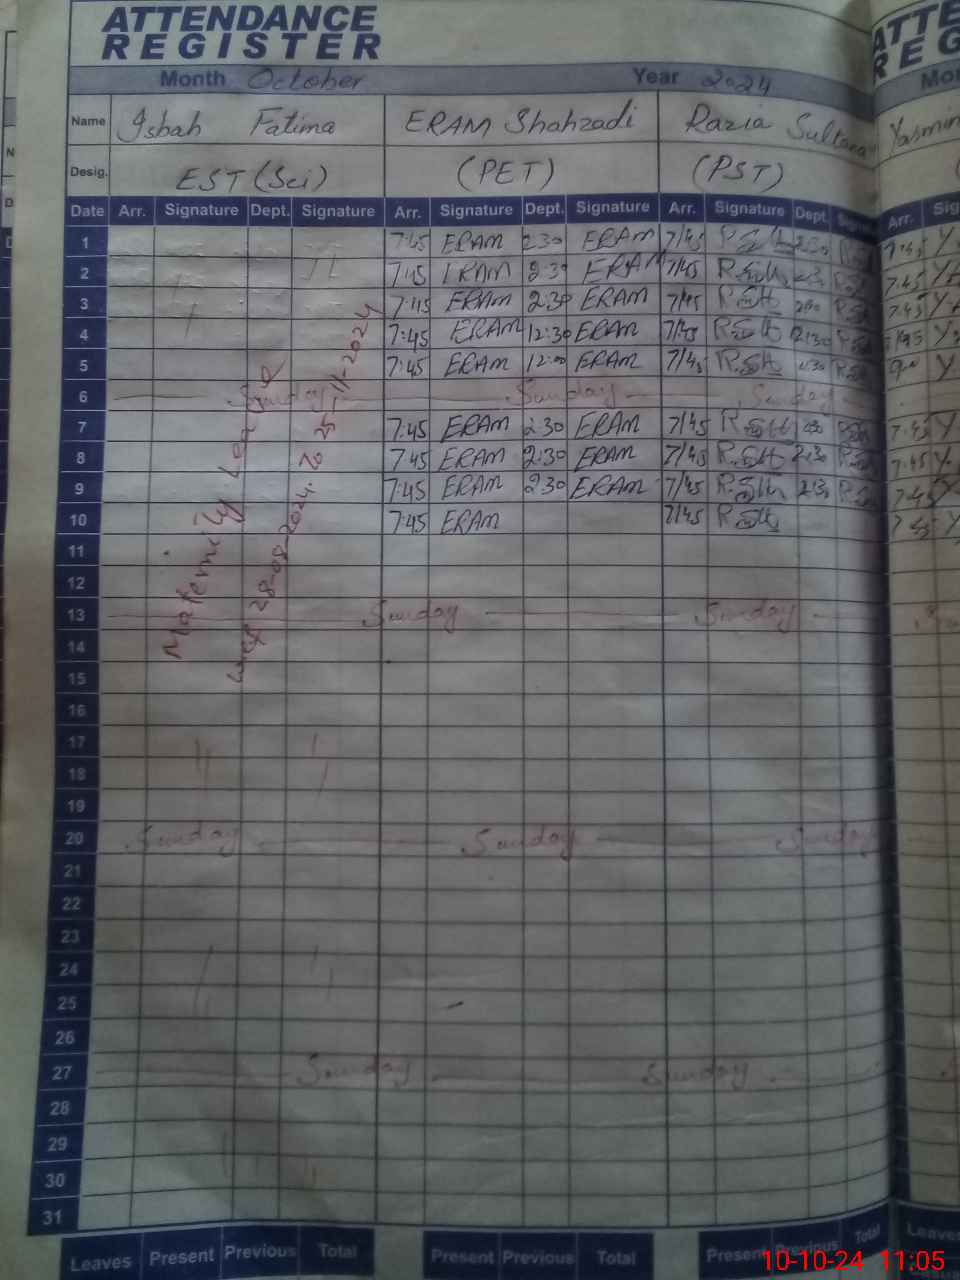 ATTENDANCE
REGISTER
Month October Year 2024
Name Isbah Fatima ERAM Shahzadi Razia Sultana Yasmin
Desig. EST (Sci) (PET) (PST)
Date Arr. Signature Dept. Signature Arr. Signature Dept. Signature Arr. Signature Dept. Arr.
1 7:45 ERAM 2:30 ERAM 7/45 2:30 7:45
2 7:45 ERAM 2:30 ERAM 7/45 7:45
3 7:45 ERAM 2:30 ERAM 7/45 2:30 7:45
4 7:45 ERAM 12:30 ERAM 7/45 12:30
5 7:45 ERAM 12:00 ERAM 7/45
6 Sunday Sunday Sunday
7 7:45 ERAM 2:30 ERAM 7/45 2:30 7:45
8 7:45 ERAM 2:30 ERAM 7/45 2:30 7:45
9 7:45 ERAM 2:30 ERAM 7/45 2:30 7:45
10 7:45 ERAM 7/45 7:45
11
12
13 Sunday Sunday
14
15
16
17
18
19
20 Sunday Sunday Sunday
21
22
23
24
25
26
27 Sunday Sunday
28
29
30
31
Maternity Leave
wef 28-08-2024. To 25-11-2024
Leaves Present Previous Total Present Previous Total Present Previous Total Leaves
10-10-24 11:05